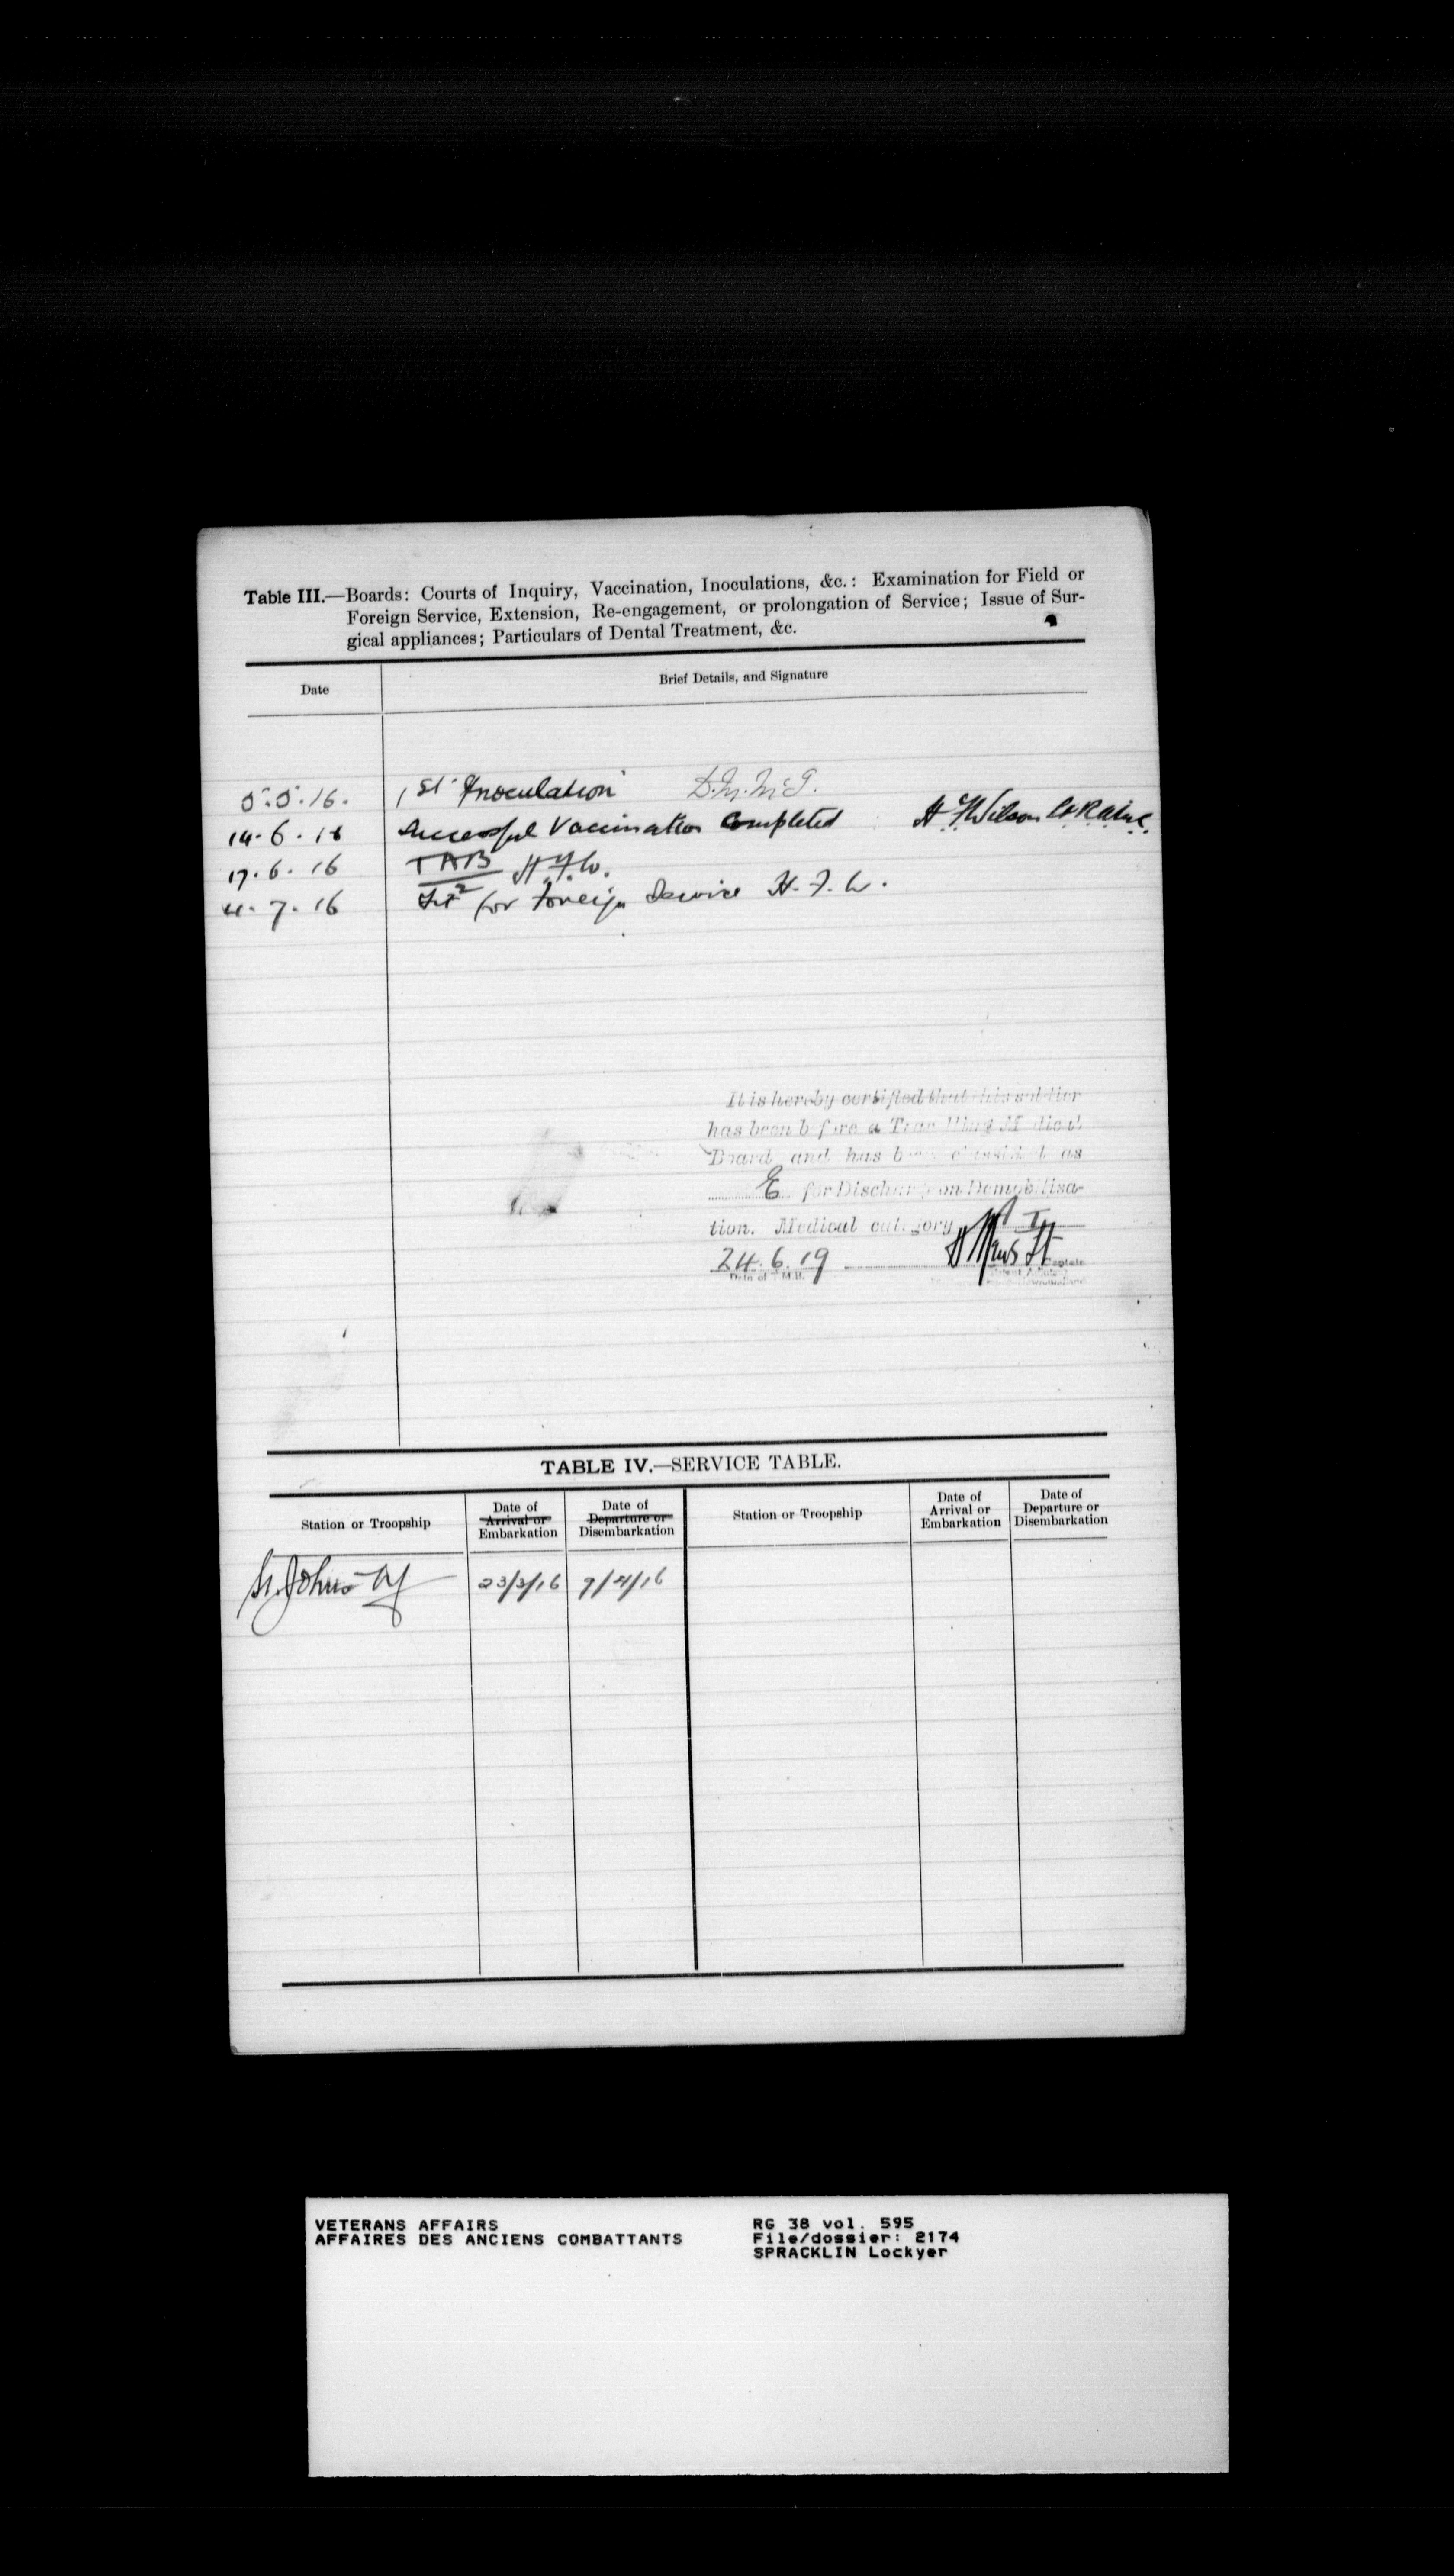 Table III.—Boards: Courts of Inquiry, Vaccination, Inoculations, &c.: Examination for Field or
Foreign Service, Extension, Re-engagement, or prolongation of Service; Issue of Sur-
gical appliances; Particulars of Dental Treatment, &c.
Date
Brief Details, and Signature
5.5.16. 1st Inoculation
14.6.16 Successful Vaccination Completed H. F. Wilson Lt R.A.M.C.
17.6.16 TAB H.F.W.
4.7.16 Fit for Foreign Service H.F.W.
It is hereby certified that this soldier
has been before a Travelling Medical
Board and has been classified as
E for Discharge on Demobilisa-
tion. Medical category A I
24.6.19
Date of T.M.B. Captain
TABLE IV.—SERVICE TABLE.
Station or Troopship
Date of Arrival or Embarkation
Date of Departure or Disembarkation
Station or Troopship
Date of Arrival or Embarkation
Date of Departure or Disembarkation
St. Johns Nf 23/3/16 9/4/16
VETERANS AFFAIRS
AFFAIRES DES ANCIENS COMBATTANTS
RG 38 vol. 595
File/dossier: 2174
SPRACKLIN Lockyer